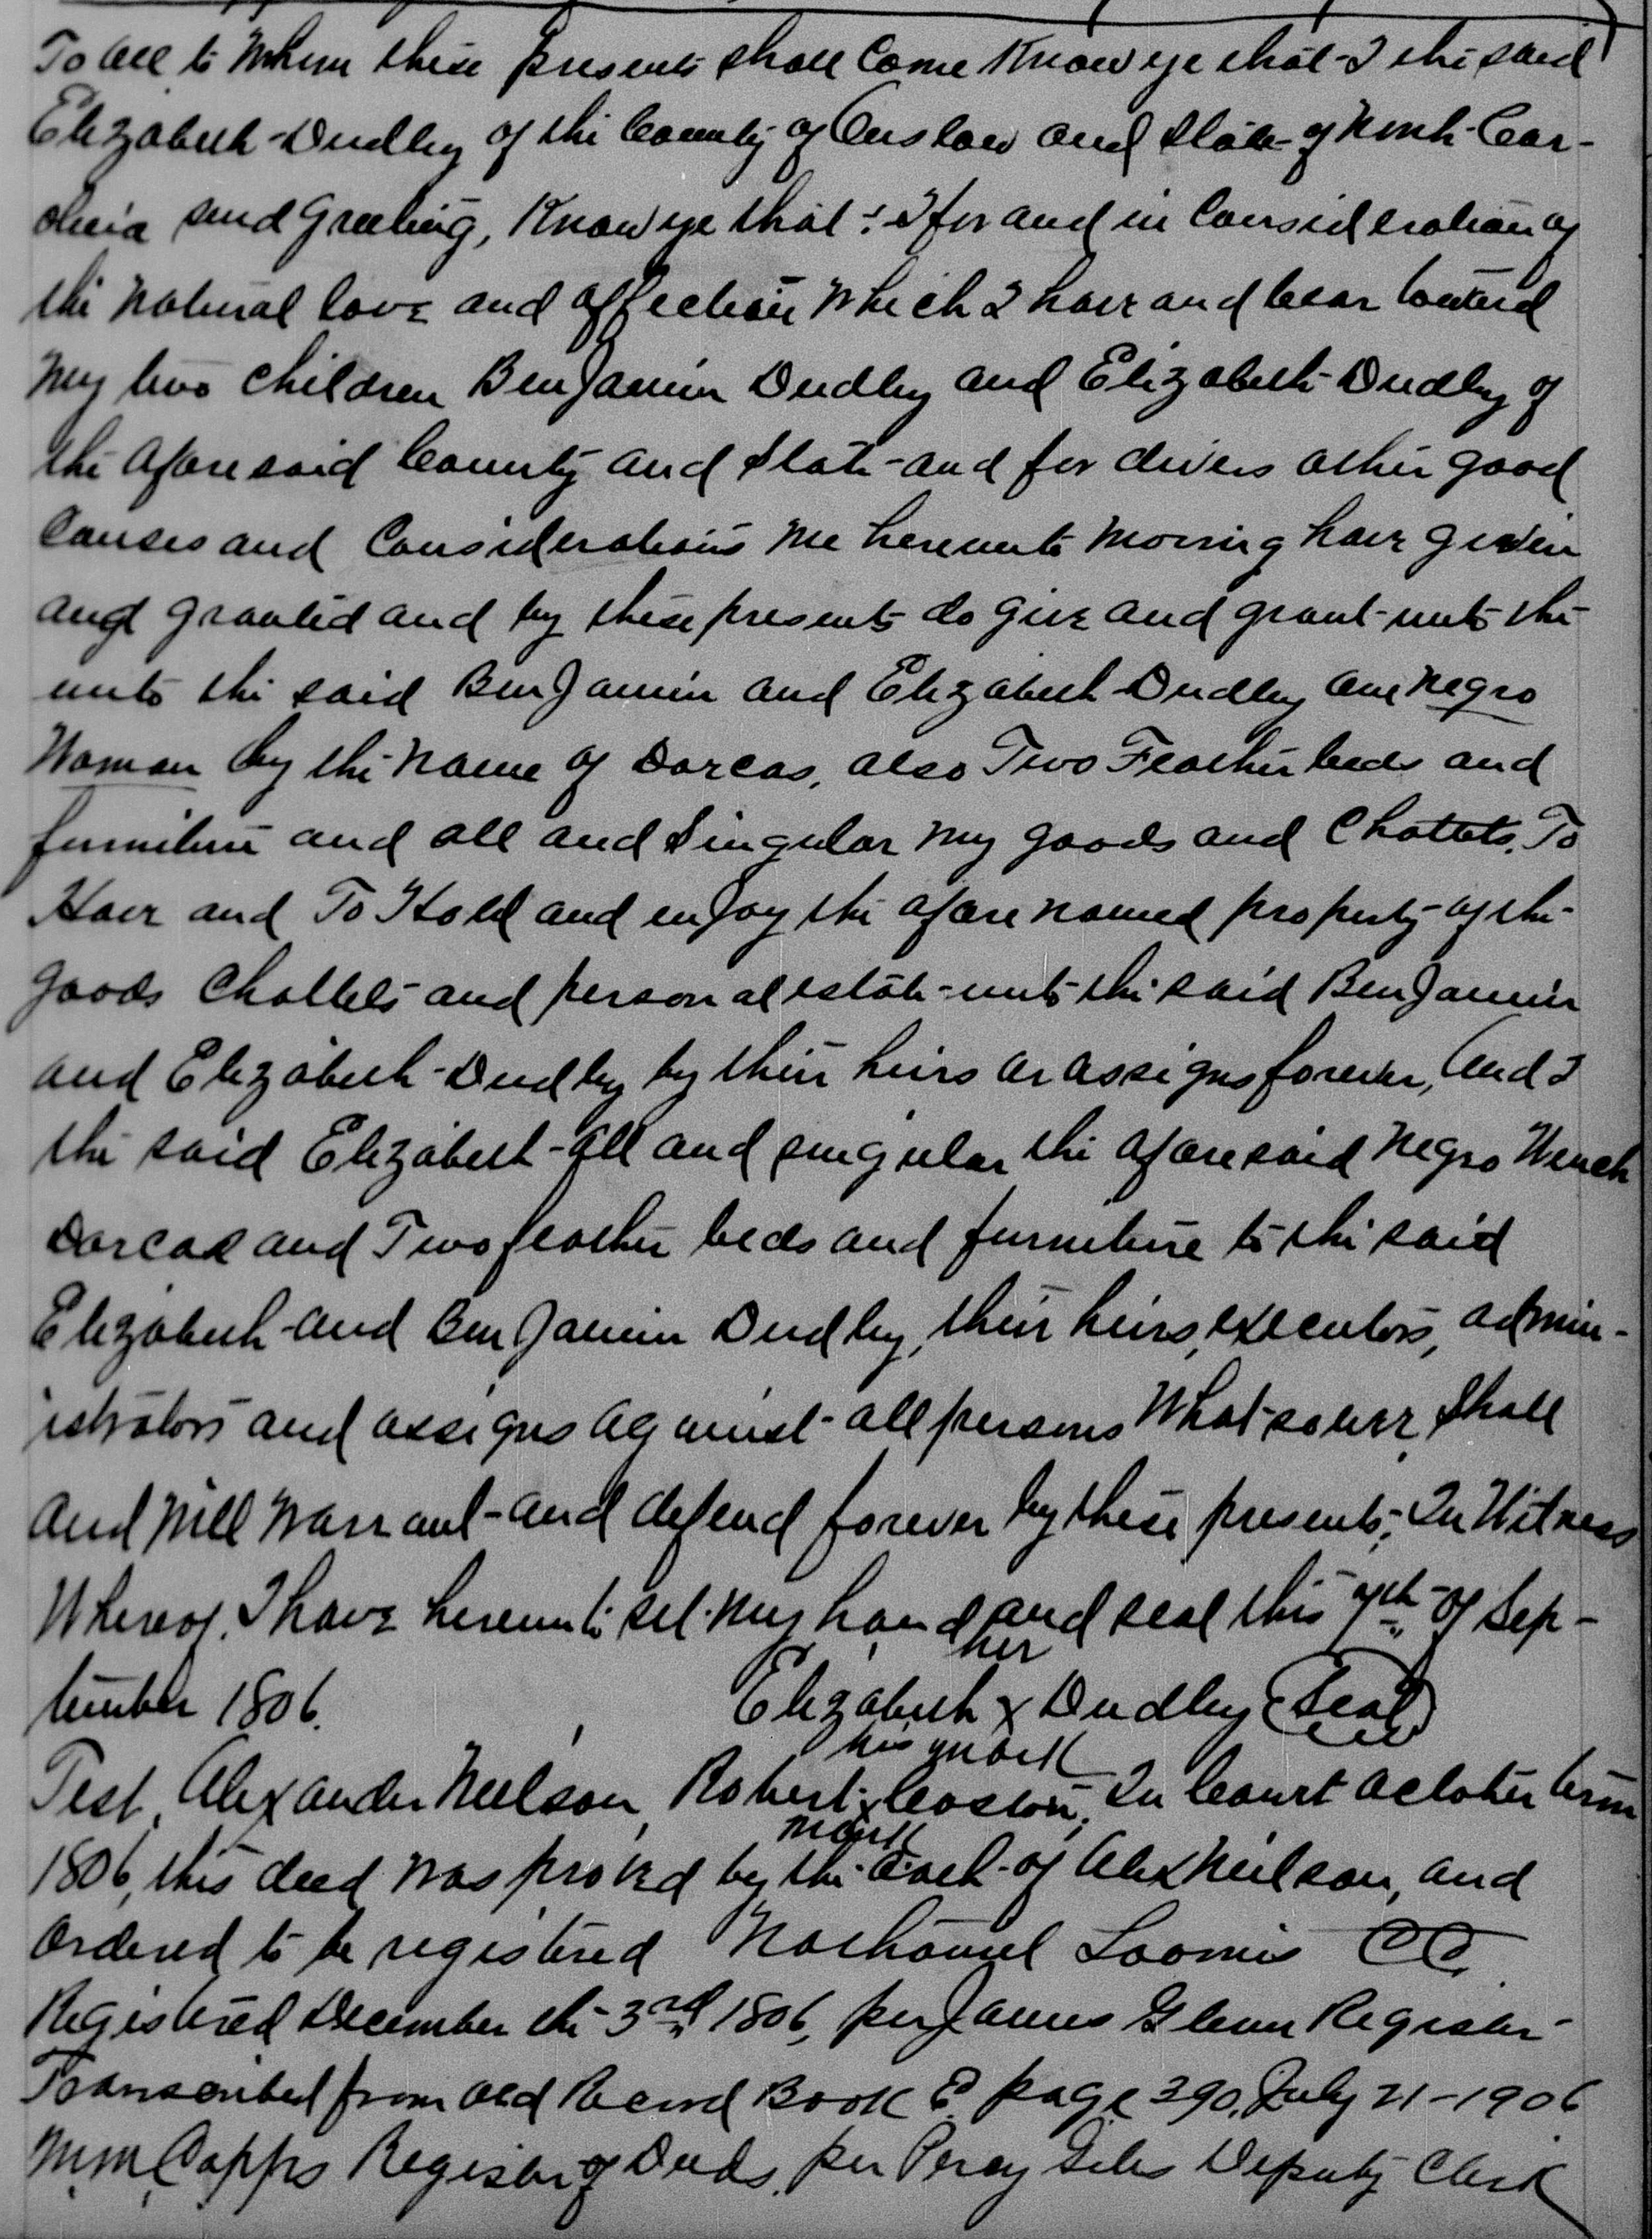 To all to Whom these presents shall Come Know ye that I the said
Elizabeth Dudley of the County of Onslow and State of North Car-
olina send Greeting, Know ye that : I for and in Consideration of
the Natural love and affection Which I have and bear toward
My two children Benjamin Dudley and Elizabeth Dudley of
the aforesaid County and State and for divers other good
Causes and Considerations me hereunto moving have given
and granted and by these presents do give and grant unto the
unto the said Benjamin and Elizabeth Dudley one Negro
Woman by the Name of Dorcas, also Two Feather beds and
furniture and all and Singular my goods and Chattels, To
Have and To Hold and enjoy the afore named property of the
goods Chattels and personal estate unto the said Benjamin
and Elizabeth Dudley by their heirs or assigns forever, And I
the said Elizabeth all and singular the aforesaid Negro Wench
Dorcas and Two feather beds and furniture to the said
Elizabeth and Benjamin Dudley, their heirs, executors, admin-
istrators and assigns against all persons Whatsoever, Shall
and Will Warrant and defend forever by these presents, In Witness
Whereof, I have hereunto set my hand and seal this 9th of Sep-
her
tember 1806. Elizabeth x Dudley (Seal)
his mark
Test, Alexander Neilson, Robert x Coston, In Court October term
mark
1806, this deed was proved by the oath of Alex Neilson, and
Ordered to be registered Nathaniel Loomis CC.
Registered December the 3rd 1806, per James Glenn Register
Transcribed from old Record Book E page 390, July 21-1906
Wm Capps Register of Deeds, per Percy Deputy Clerk